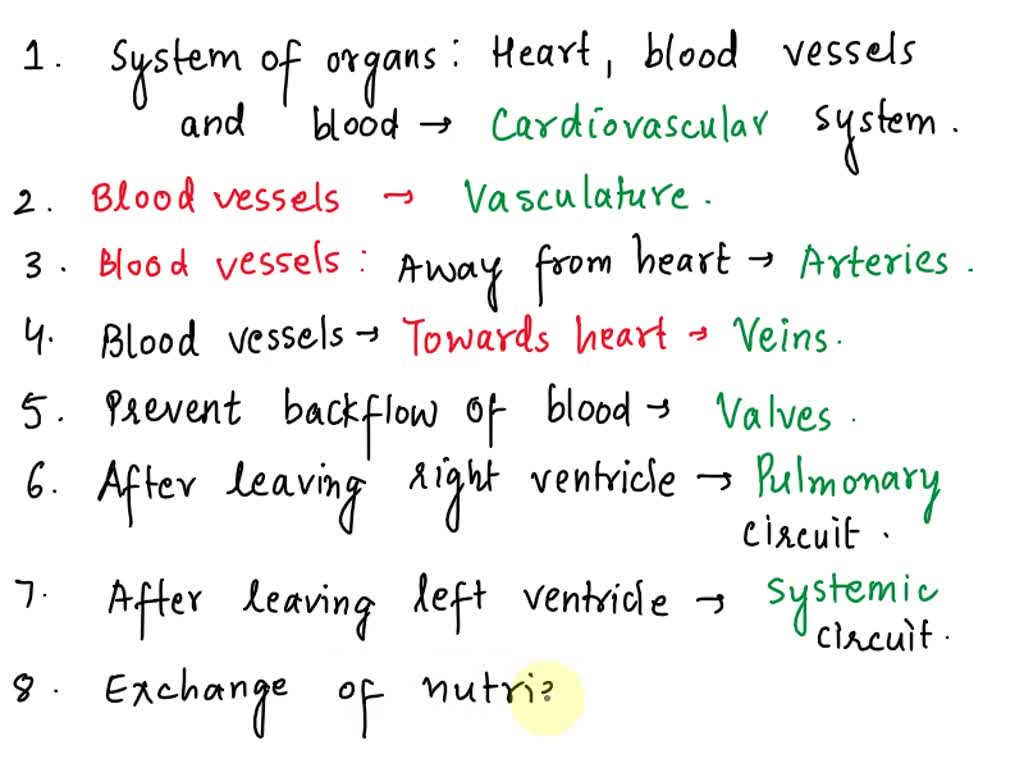 1. System of organs: Heart, blood vessels
and blood → Cardiovascular system.
2. Blood vessels → Vasculature.
3. Blood vessels: Away from heart → Arteries.
4. Blood vessels → Towards heart → Veins.
5. Prevent backflow of blood → Valves.
6. After leaving right ventricle → Pulmonary
circuit.
7. After leaving left ventricle → Systemic
circuit.
8. Exchange of